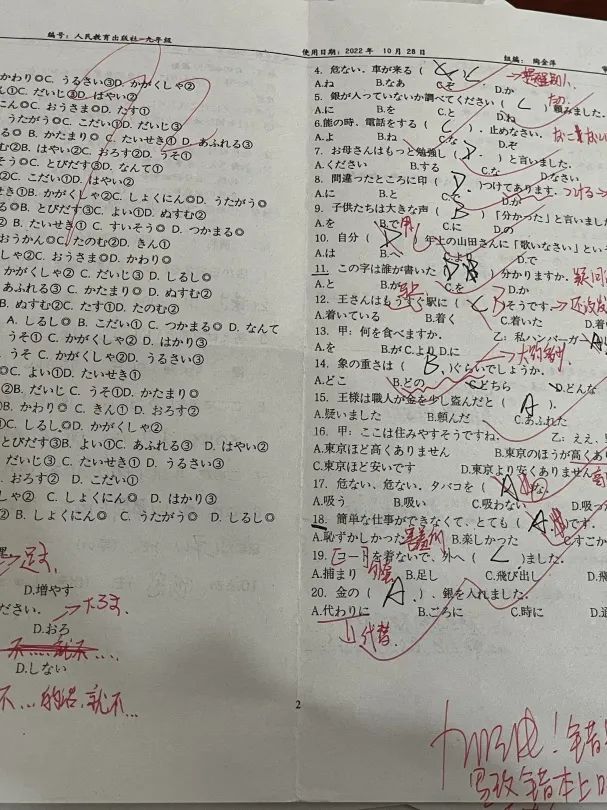 编号：人民教育出版社-九年级
使用日期：2022 年 10 月 28 日
组编：陶金萍
かわり◎C. うるさい③D. かがくしゃ②
①C. だいじ③D. はやい②
にん◎C. おうさま◎D. たす①
たがう◎C. こだい①D. だいじ③
る◎ B. かたまり◎ C. たいせき① D. あふれる③
む②B. はやい②C. おろす②D. うそ①
そう◎C. とびだす③D. なんて①
②C. こだい①D. はやい②
き①B. かがくしゃ②C. しょくにん◎D. うたがう◎
る◎B. とびだす③C. よい①D. ぬすむ②
② B. たいせき① C. すいそう◎ D. つかまる◎
おうかん◎C. たのむ②D. きん①
しゃ②C. おうさま◎D. かわり◎
かがくしゃ②C. だいじ③ D. しるし◎
あふれる③ C. かたまり◎ D. ぬすむ②
B. ぬすむ②C. たす①D. たのむ②
A. しるし◎ B. こだい① C. つかまる◎ D. なんて
うそ① C. かがくしゃ② D. はかり③
うそ C. かがくしゃ②D. うるさい③
◎C. よい①D. たいせき①
②B. だいじ C. うそ①D. かたまり◎
B. かわり◎ C. きん① D. おろす②
①C. しるし◎D. かがくしゃ②
とびだす③B. よい①C. あふれる③ D. はやい②
だいじ③ C. たいせき① D. うるさい③
おろす② D. こだい①
しゃ② C. しょくにん◎ D. はかり③
B. しょくにん◎ C. うたがう◎ D. しるし◎
D.増やす
ださい。
D.おろ
不…就不…
D.しない
不…的话,就不…
4. 危ない。車が来る（ C ）
A.ね B.なあ C.ぞ D.か
5. 銀が入っていないか調べてください（ C ）頼みました。
A.に B.を C.と D.ね
6.能の時、電話をする（ C ）．止めなさい。
A.よ B.ね C.な D.ぞ
7. お母さんはもっと勉強し（ D ）と言いました。
A.ください B.する C.な D.なさい
8. 間違ったところに印（ D ）つけてあります。
A.に B.と C.で D.が
9. 子供たちは大きな声（ B ）「分かった」と言いまし
A.を B.で C.に D.の
10. 自分（ D ）年上の山田さんに「歌いなさい」という
A.は B.へ C.より D.で
11. この字は誰が書いた（ B ）分かりますか。疑问
A.と B.か C.を D.か
12. 王さんはもうすぐ駅に（ B ）そうです。
A.着いている B.着く C.着いた D.着
13. 甲：何を食べますか。 乙：私ハンバーガー
A.を B.がC.よりD.に
14. 象の重さは（ B ）ぐらいでしょうか。
A.どこ B.どの C.どちら D.どんな
15. 王様は職人が金を少し盗んだと（ A ）．
A.疑いました B.頼んだ C.あふれた
16. 甲：ここは住みやすそうですね。 乙：ええ、
A.東京ほど高くありません B.東京のほうが高くあり
C.東京ほど安いです D.東京より安くありません
17. 危ない、危ない。タバコを（ A ）な。
A.吸う B.吸い C.吸わない D.吸っ
18. 簡単な仕事ができなくて、とても（ A ）です。
A.恥ずかしかった B.楽しかった C.すごか
19. コートを着ないで、外へ（ C ）ました。
A.捕まり B.足し C.飛び出し D.飛
20. 金の（ A ）、銀を入れました。
A.代わりに B.ころに C.時に D.通
代替
2
加油！错
写改错本上